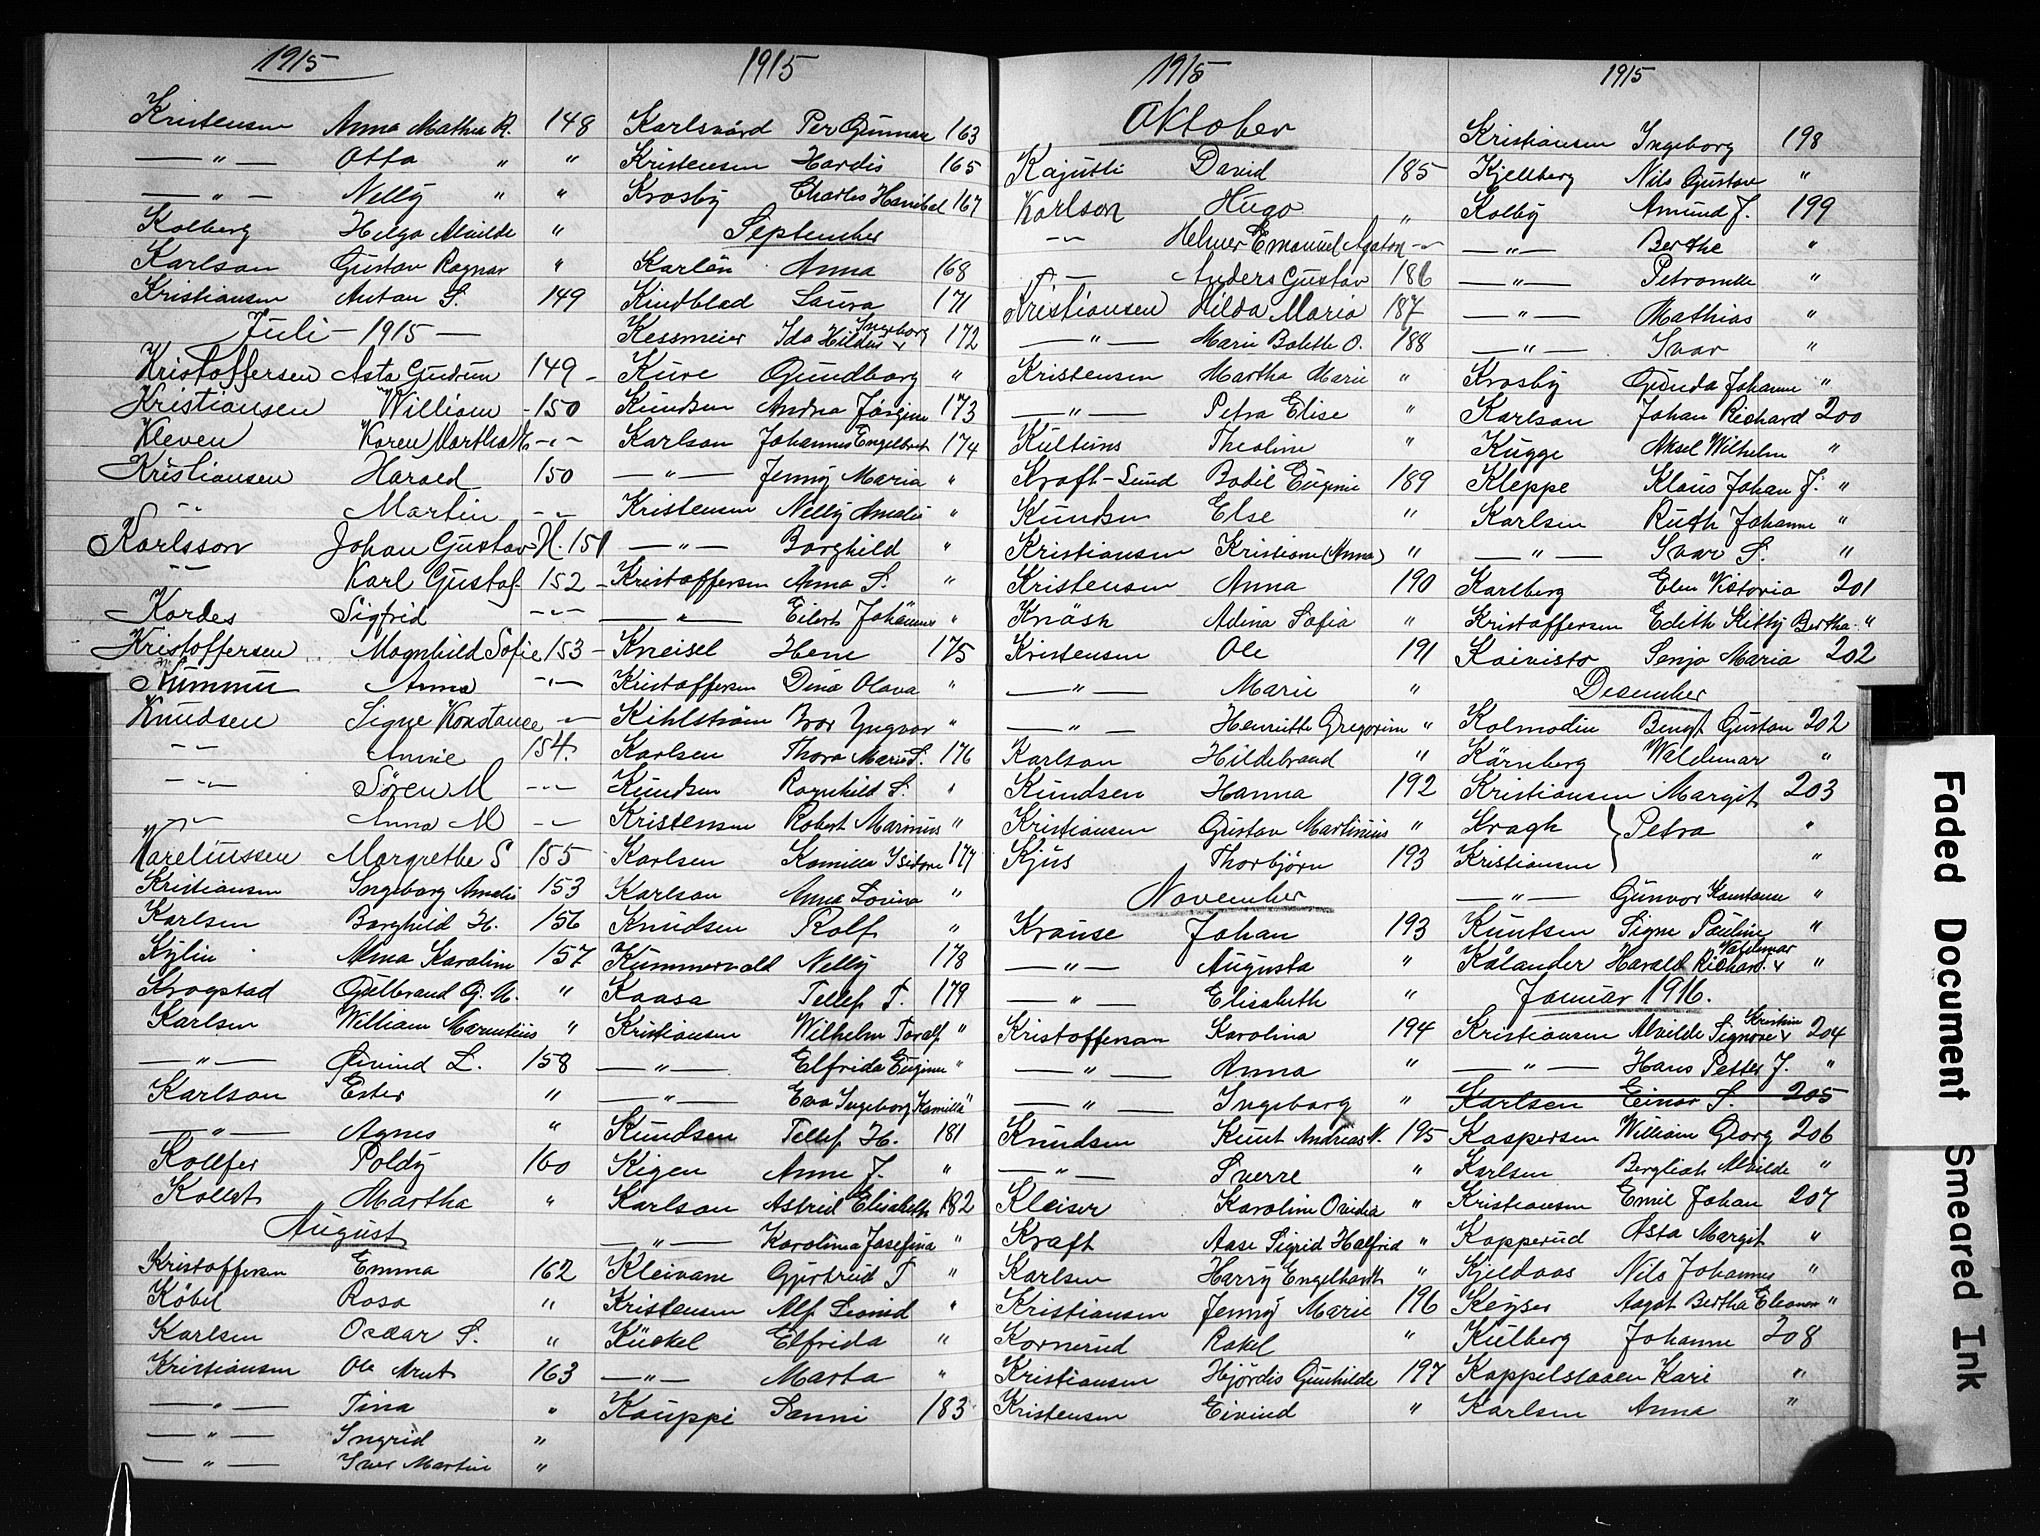 1915
Kristensen Anna Mathea R. 148
— " — Otto " "
— " — Nelly " "
Kolberg Helga Alvilde "
Karlson Gustav Ragnar "
Kristiansen Anton S. 149
Juli — 1915 —
Kristoffersen Asta Gudrun 149
Kristiansen William 150
Kleven Karen Martha -"-
Kristiansen Harald 150
" Martin -"-
Karlsson Johan Gustav H. 151
-"- Karl Gustaf 152
Kordes Sigfrid -"-
Kristoffersen Magnhild Sofie 153
Kummu Anna -"-
Knudsen Signe Konstance -"-
-"- Annie 154.
-"- Sören M -"-
-"- Anna M -"-
Kareliussen Margrethe S 155
Kristiansen Ingeborg Amalie 153
Karlsen Borghild H. 156
Kylin Alma Karoline 157
Krogstad Gulbrand G. A. "
Karlsen William Marentius "
— " — Øivind L. 158
Karlson Ester "
— " — Agnes "
Kollfer Poldy 160
Kollet Martha "
August
Kristoffersen Emma 162
Köbil Rosa "
Karlsen Oscar S. "
Kristiansen Ole Arnt 163
— " — Tina "
— " — Ingrid "
— " — Iver Martin "
1915
Karlsvärd Per Gunnar 163
Kristensen Hardis 165
Krosby Charles Hanibal 167
September
Karlén Anna 168
Kindblad Laura 171
Kessmeier Ida Hilda Ingeborg 172
Kure Gundborg "
Knudsen Andrea Jörgine 173
Karlson Johannes Engelbret 174
— " — Jenny Maria "
Kristensen Nelly Amalie "
— " — Borghild "
Kristoffersen Anna S. "
— " — Eilert Johannes "
Kneisel Hene 175
Kristoffersen Dina Olava "
Kihlström Bror Yngvar "
Karlsen Thora Marie S. 176
Knudsen Ragnhild S. "
Kristensen Robert Marinius "
Karlsen Kamilla Isidore 177
Karlson Anna Lovisa "
Knudsen Rolf "
Kummervold Nelly 178
Kaasa Tellef T. 179
Kristiansen Wilhelm Toralf "
— " — Elfrida Eugine "
— " — Eva Ingeborg Kamilla "
Kundsen Tellef H. 181
Kigen Anne J. "
Karlson Astrid Elisabeth 182
— " — Karolina Josefina "
Kleivane Gjertrud T "
Kristensen Alf Leonid "
Kückel Elfrida "
— " — Marta "
Kauppi Sanni 183
1915
Oktober
Kajutti David 185
Karlson Hugo "
-"- Helmer Emanuel Agaton -"-
-"- Anders Gustav 186
Kristiansen Hilda Maria 187
— " — Marie Bolette O. 188
Kristensen Martha Marie "
— " — Petra Elise "
Kultums Theoline "
Kraft-Lund Bodil Eugenie 189
Kundsen Else "
Kristiansen Kristiane (Anna) "
Kristensen Anna 190
Knäsk Adina Sofia "
Kristensen Ole 191
— " — Marie "
— " — Henriette Gregorine "
Karlson Hildebrand "
Kundsen Hanna 192
Kristiansen Gustav Martinius "
Kjus Thorbjörn 193
November
Krause Johan 193
— " — Augusta "
— " — Elisabeth "
Kristofferson Karolina 194
— " — Anna "
— " — Ingeborg "
Knudsen Knut Andreas V. 195
— " — Sverre "
Kleiser Karoline Ovidia "
Kraft Aase Sigrid Halfrid "
Karlsen Harry Engelhardt "
Kristiansen Jenny Marie 196
Kornerud Rakel "
Kristiansen Hjördis Gunhilde 197
Kristensen Eivind "
1915
Kristiansen Ingeborg 198
Kjellberg Nils Gustav "
Kolby Amund J. 199
— " — Berthe "
— " — Petronelle "
— " — Mathias "
— " — Ivar "
Krosby Gunda Johanne "
Karlson Johan Richard 200
Kugge Aksel Wilhelm "
Kleppe Klaus Johan J. "
Karlsen Ruth Johanne "
— " — Ivar S. "
Karlberg Elen Victoria 201
Kristoffersen Edith Kitty Bertha "
Koivisto Senja Maria 202
Desember
Kolmodin Bengt Gustav 202
Kärnberg Waldemar "
Kristiansen Margit 203
Kragh } Petra "
Kristiansen "
— " — Gunvor Konstanse "
Kuntsen Signe Pauline "
Kålander Harald Richard Waldemar "
Januar 1916.
Kristiansen Alvilde Signove Kristine 204
— " — Hans Petter J. "
Karlsen Einar S. 205
Kaspersen William Georg 206
Karlsen Bergliot Alvilde "
Kristiansen Emil Johan 207
Kopperud Asta Margit "
Kjeldaas Nils Johannes "
Keyser Aagot Bertha Eleanor "
Kulberg Johanne 208
Kappelslaaen Kari "
Karlsen Anna "
Faded Document Smeared Ink